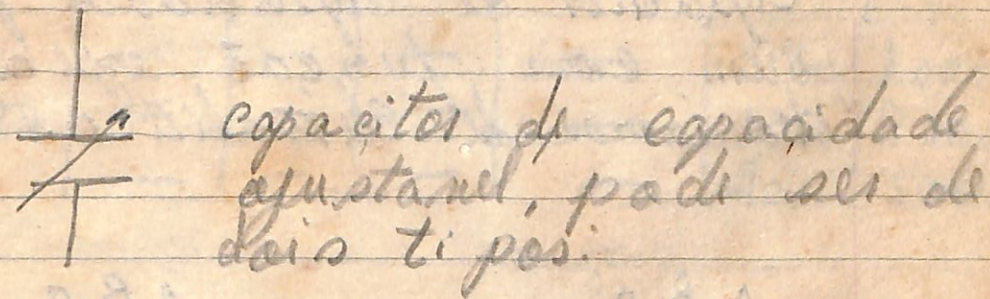 capacitor de capacidade
ajustavel, pode ser de
dois tipos.